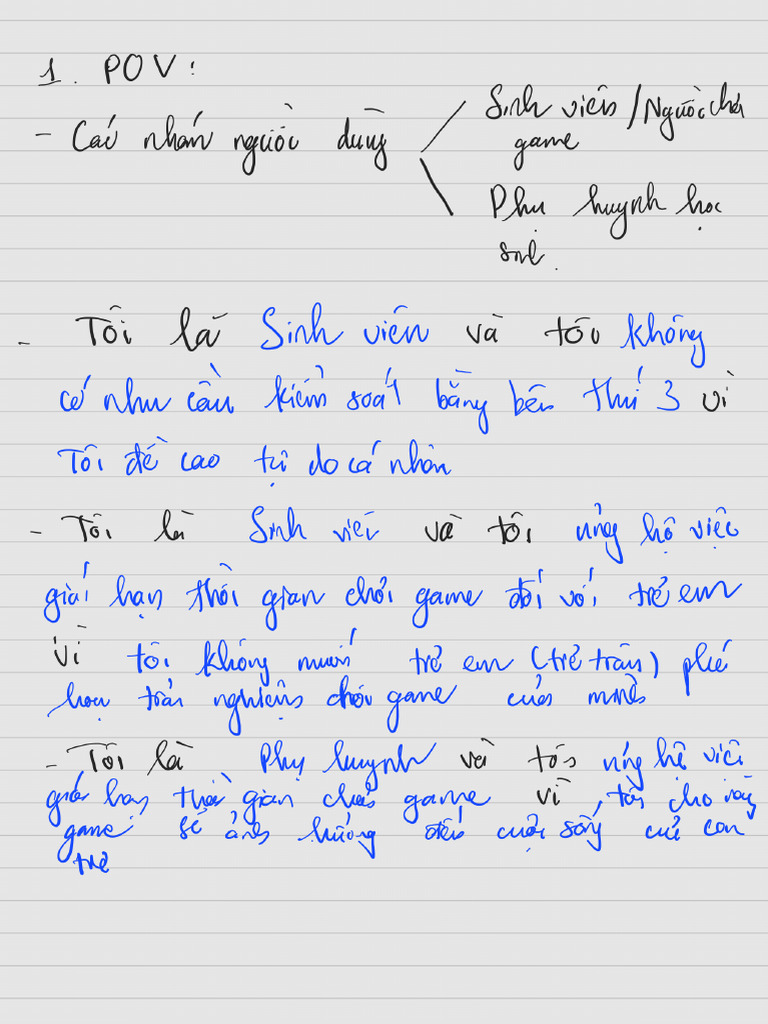 1. POV:
- Các nhân người dùng
Sinh viên / Người chơi
game
Phụ huynh học
sinh.
- Tôi là Sinh viên và tôi không
có nhu cầu kiểm soát bằng bên thứ 3 vì
Tôi đề cao tự do cá nhân
- Tôi là Sinh viên và tôi ủng hộ việc
giới hạn thời gian chơi game đối với trẻ em
vì tôi không muốn trẻ em (trẻ trâu) phá
hoại trải nghiệm chơi game của mình
- Tôi là Phụ huynh và tôi ủng hộ việc
giới hạn thời gian chơi game vì, tôi cho rằng
game sẽ ảnh hưởng đến cuộc sống của con
trẻ